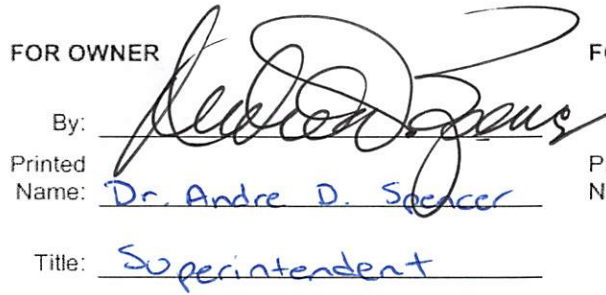 FOR OWNER
By:
Printed
Name: Dr. Andre D. Spencer
Title: Superintendent